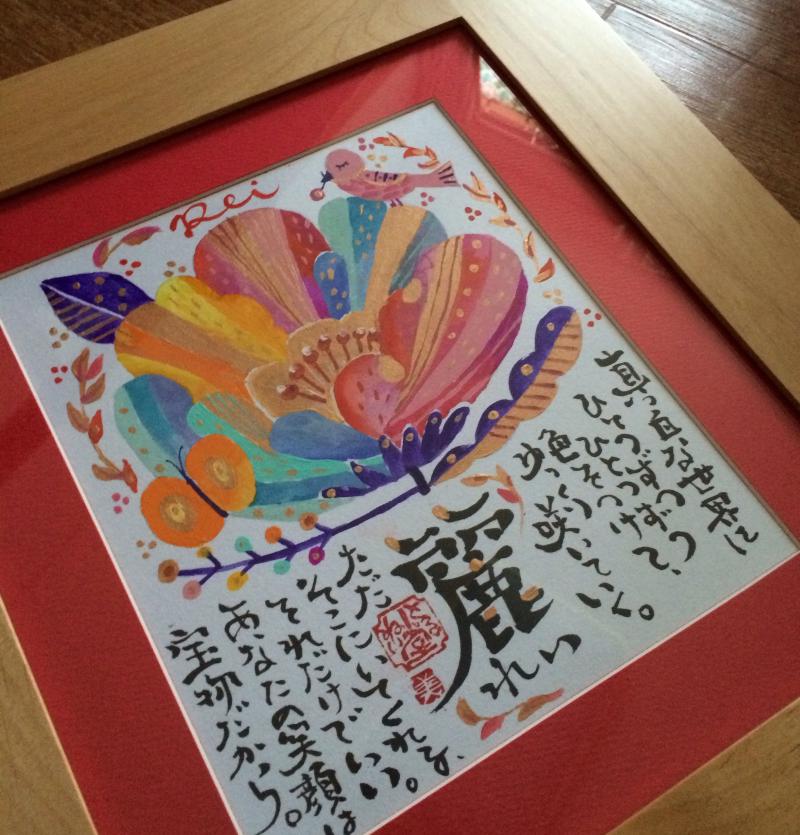 Rei
真っ白な世界に
ひとつずつ
色をつけて、
ゆっくり咲いていく。
麗
れい
ただ
そこにいてくれる、
それだけでいい。
あなたの笑顔は
宝物だから。
美